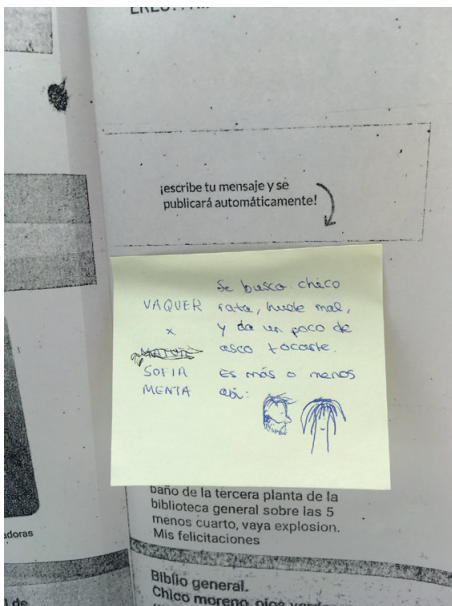 ¡escribe tu mensaje y se
publicará automáticamente!
Se busca chico
rata, huele mal,
y da un poco de
asco tocarle.
Es más o menos
así:
VAQUER
x
SOFIA
MENTA
baño de la tercera planta de la
biblioteca general sobre las 5
menos cuarto, vaya explosion.
Mis felicitaciones
adoras
Biblio general.
Chico moreno, ojos
de